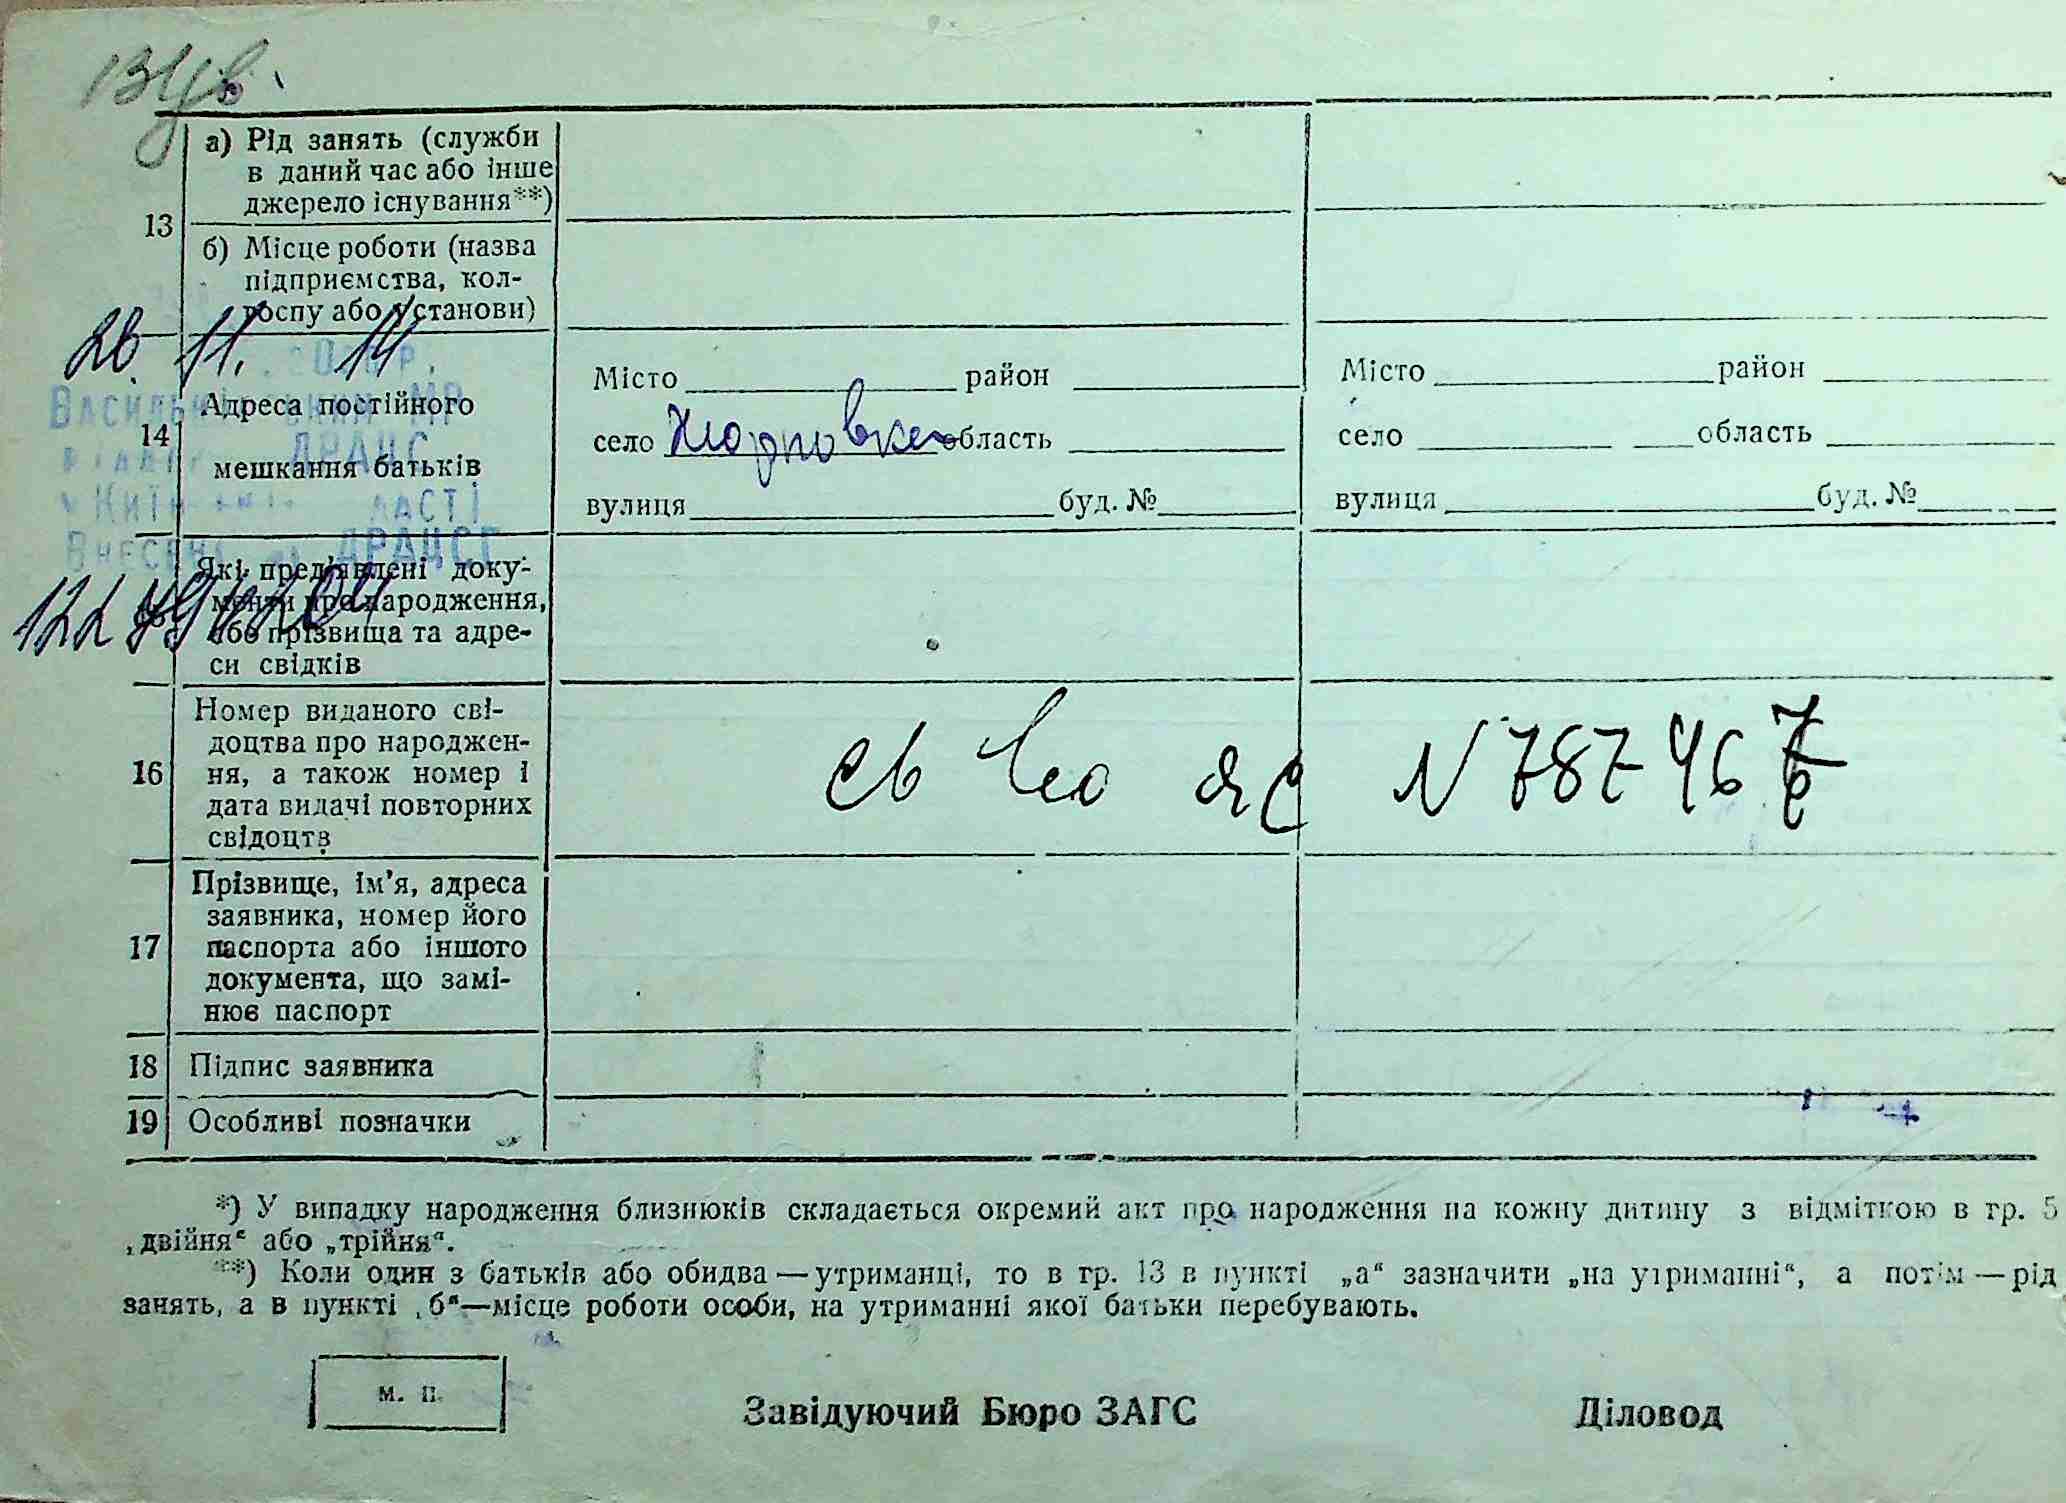 13
а) Рід занять (служби
в даний час або інше
джерело існування**)
б) Місце роботи (назва
підприємства, кол-
госпу або установи)
20 р.
Васильківським МР
ДРАЦС
ДРАЦСГ
14
Адреса постійного
мешкання батьків
Місто район
село область
вулиця буд. №
Місто район
село область
вулиця буд. №
Які пред'явлені доку-
менти про народження,
або прізвища та адре-
си свідків
16
Номер виданого сві-
доцтва про народжен-
ня, а також номер і
дата видачі повторних
свідоцтв
N 787467
17
Прізвище, ім'я, адреса
заявника, номер його
паспорта або іншого
документа, що замі-
нює паспорт
18 Підпис заявника
19 Особливі позначки
*) У випадку народження близнюків складається окремий акт про народження на кожну дитину з відміткою в гр. 5
„двійня“ або „трійня“.
**) Коли один з батьків або обидва — утриманці, то в гр. 13 в пункті „а“ зазначити „на утриманні“, а потім — рід
занять, а в пункті „б“—місце роботи особи, на утриманні якої батьки перебувають.
м. п.
Завідуючий Бюро ЗАГС Діловод